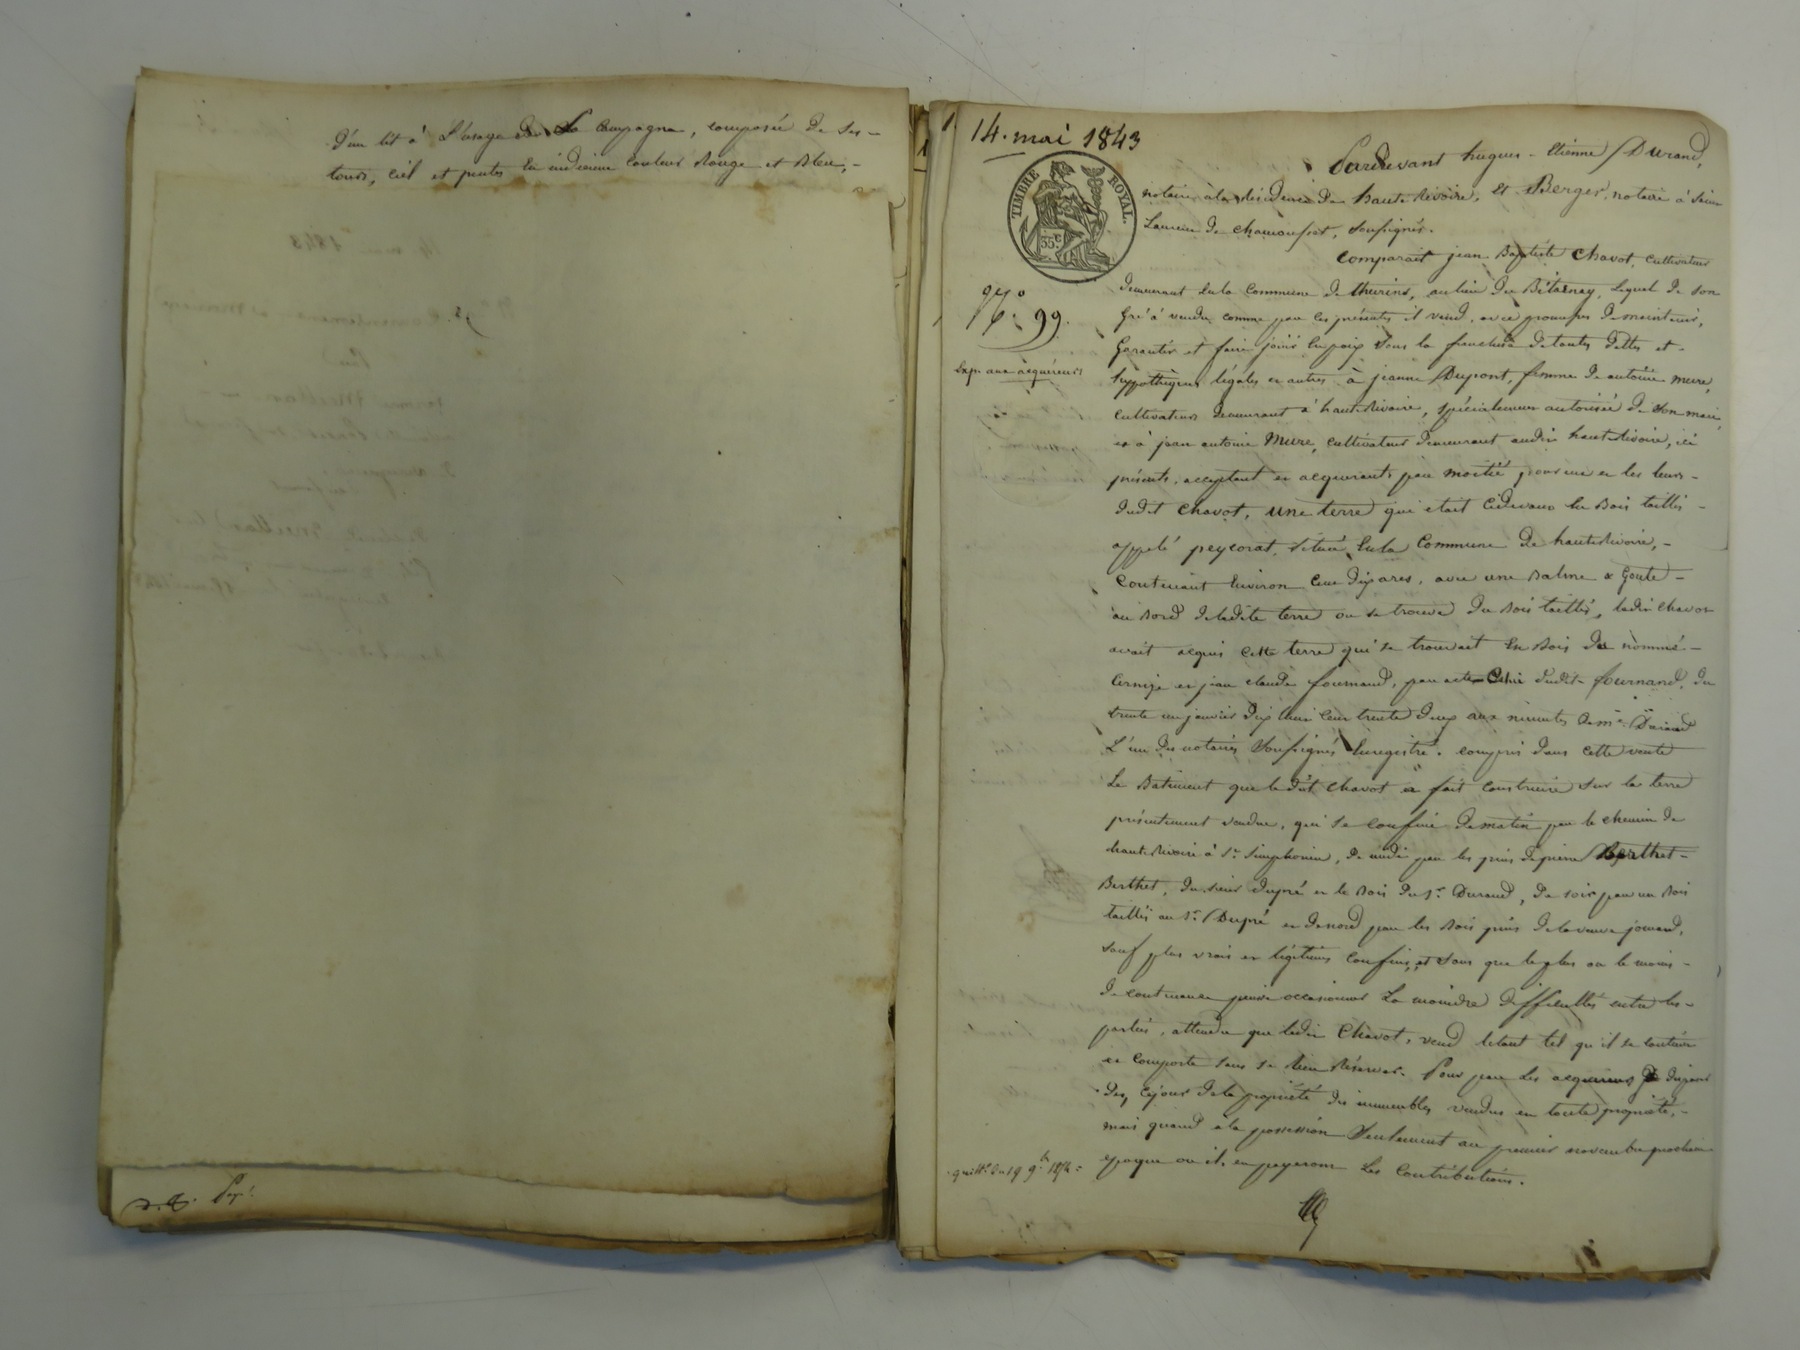 d'un lit à l'usage de la Campagne, composée de ses-
tours, ciel et pentes en indienne couleur Rouge et Bleu,-
14. mai 1843
TIMBRE ROYAL.
35c
No
6. 99.
Exp. aux acquéreurs
Pardevant hugues-Etienne Durand,
notaire à la résidence de hauterivoire, et Berger, notaire à Saint
Laurent de chamousset, soussignés.
Comparait jean Baptiste Chavot, cultivateur
demeurant en la Commune de thurins, au lieu du Bétarnay, lequel de son
gré à vendu comme par ces présentes il vend, avec promesses de maintenir,
garantir et faire jouir en paix sous la franchise de toutes dettes et-
hypothèques légales et autres à jeanne Dupont, femme de antoine mure,
cultivateur demeurant à hauterivoire, spécialement autorisée de son mari,
et à jean antoine Mure, cultivateur demeurant audit hauterivoire, ici
présents, acceptant et acquérants par moitié pour eux et les leurs-
dudit Chavot, une terre qui était cidevant en Bois taillis-
appelé peycorat, située en la Commune de hauterivoire,-
contenant environ cent dix ares, avec une Balme & Goute-
au Bord de ladite terre ou se trouve du Bois taillis, ledit Chavot
avait acquis cette terre qui se trouvait en Bois du nommé-
et jean claude fournand, par acte dudit fournand, du
trente un janvier dix huit cent trente deux aux minutes de me Durand
L'un des notaires soussignés Enregistré. compris dans cette vente
Le Batiment que ledit Chavot a fait construire sur la terre
présentement vendue, qui se confine de matin par le chemin de
hauterivoire à St. Simphorien, de midi par les prés de pierre Berthet-
Berthet, du sieur dupré et le Bois du Sr. Durand, de soir par un Bois
taillis au Sr. Dupré et de nord par les Bois prés de la veuve jomand,
sauf plus vrais et légitimes confins, et sans que le plus ou le moins-
de contenance puisse occasionner La moindre difficulté entre les-
parties, attendu que ledit Chavot, vend le tout tel qu'il se contient
et comporte sans se rien Réserver. Pour par les acquéreurs disposer
dès cejour de la propriété des immeubles vendus en toute propriété,-
mais quand à la possession seulement au premier novembre prochain
époque ou ils en payeront les Contributions.
quitt. du 19 9bre 1842